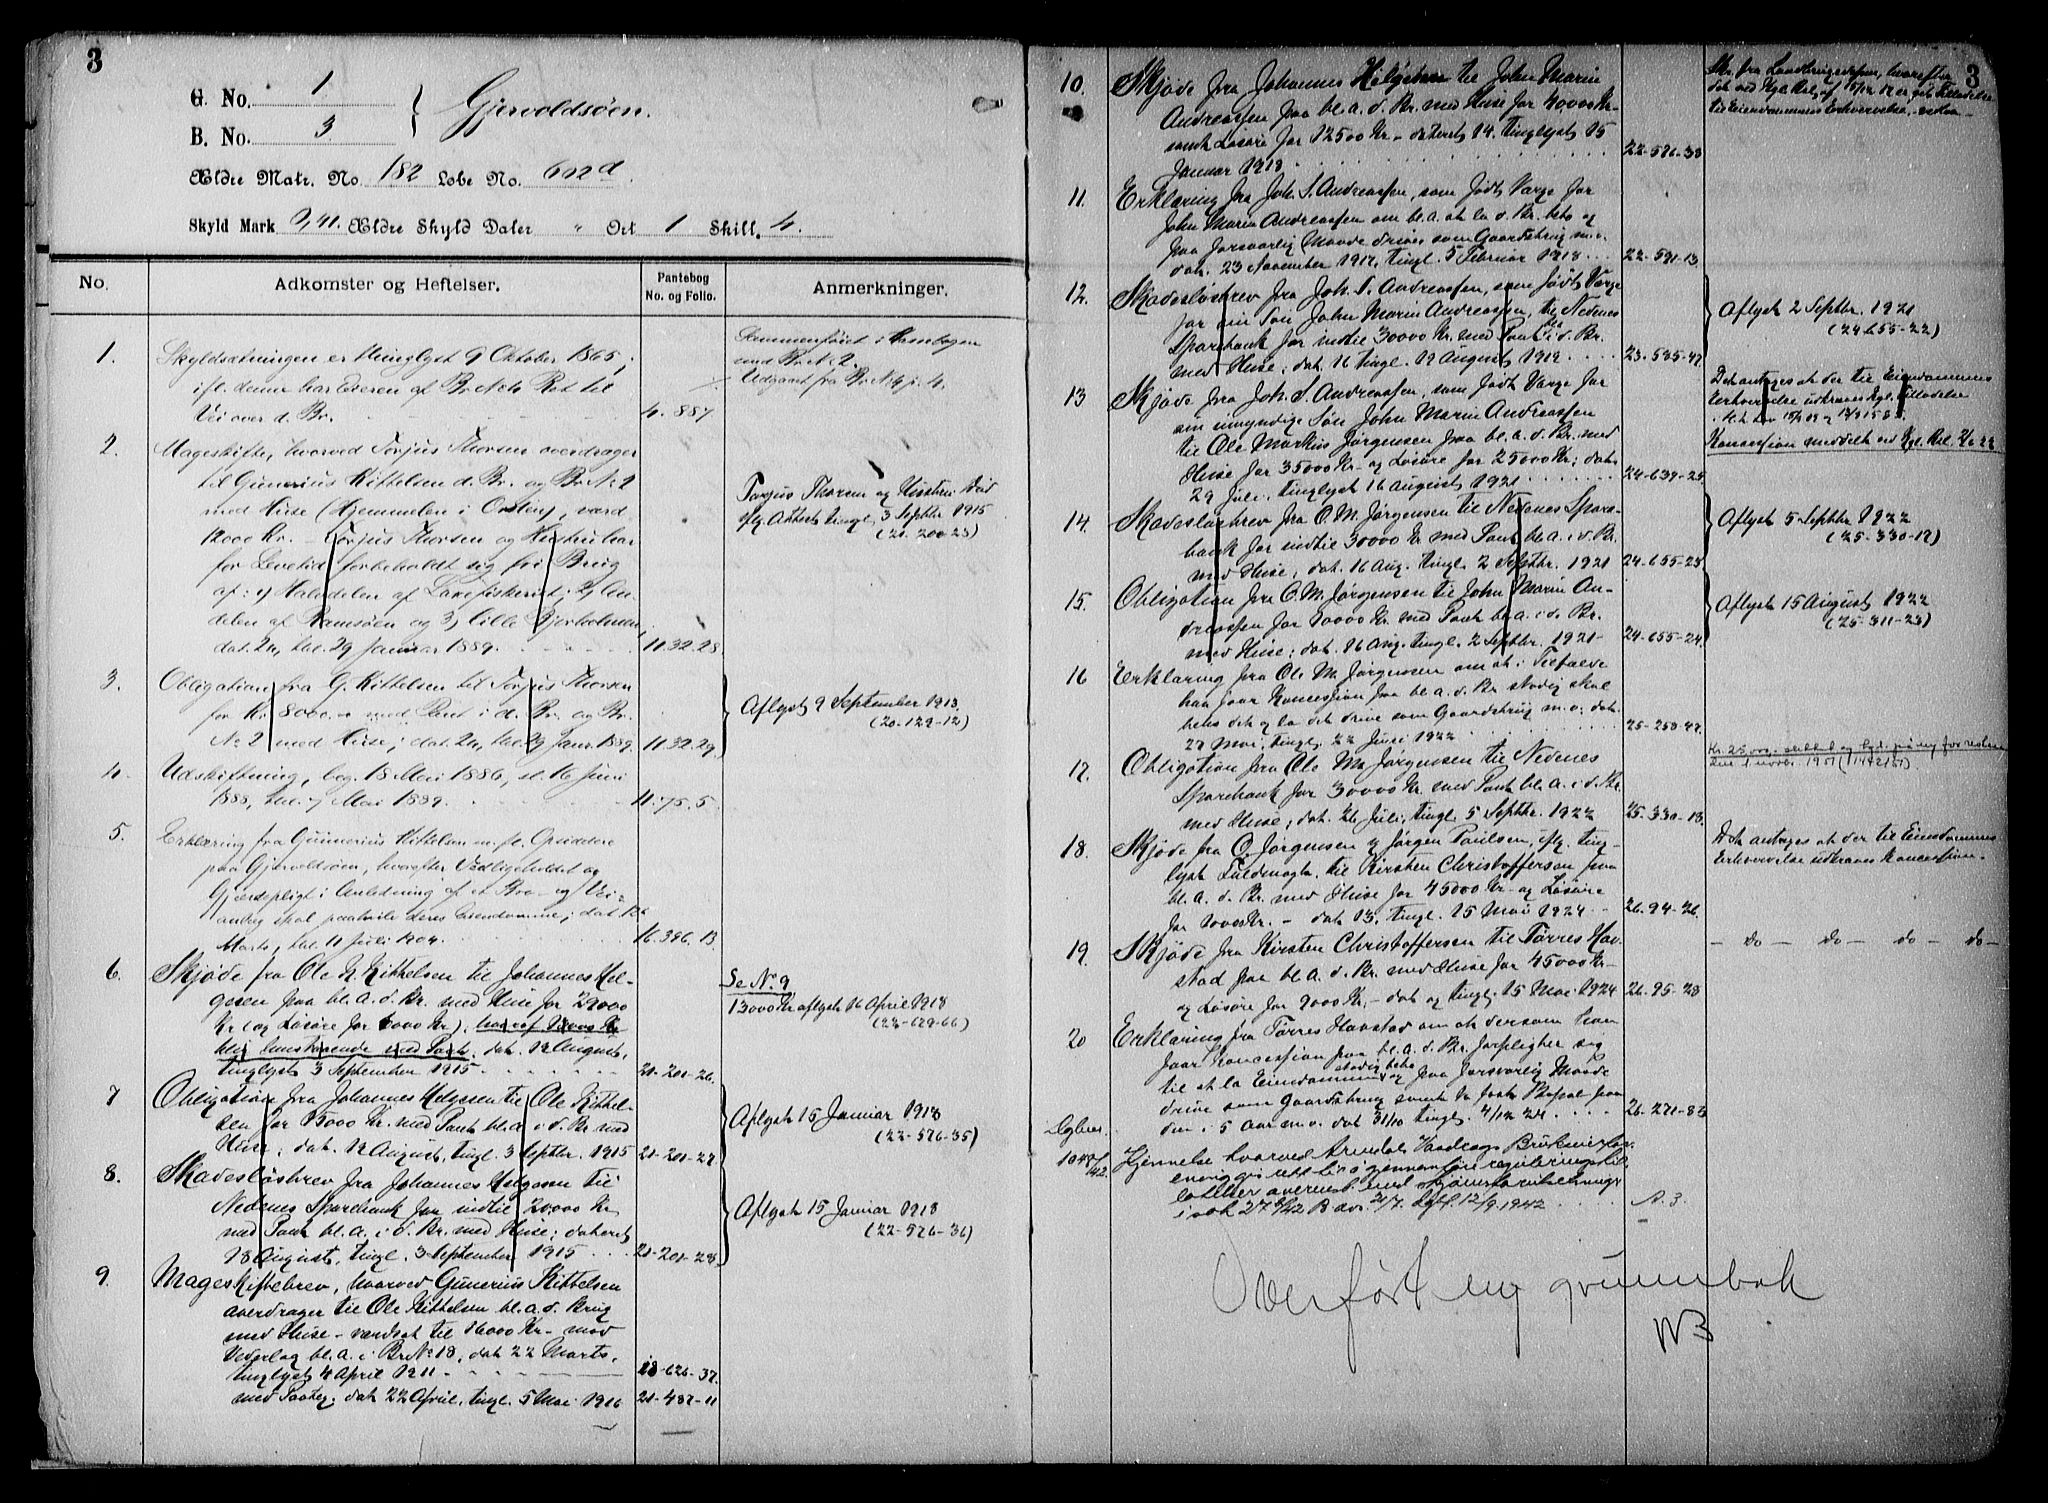 3
G. No. 1
B. No. 3
Gjervoldsöen.
Ældre Matr. No. 182 Løbe No. 602d.
Skyld Mark 9,41. Ældre Skyld Daler " Ort 1 Skill. 4.
No.
Adkomster og Heftelser.
Pantebog No. og Folio.
Anmerkninger.
1. Skyldsætningen er thinglyst 9 Oktober 1865;
ifl. denne har Eieren af Br. No 4 Ret til
Vei over d. Br. 4. 887
Sammenføiet i
med Br. No 2.
Udgaaet fra Br. No 4 p. 4.
2. Mageskifte, hvorved Torjus Thorsen overdrager
til Gunerius Kittelsen d. Br. og Br. No 2
med Huse (Hjemmelen i Orden), værd
12000 Kr. – Torjus Thorsen og Hustru har
for Levetid forbeholdt sig fri Brug
af: 1) Halvdelen af Laxefiskeriet; 2) An-
delen af Ramsöen og 3) lille Bjorholmen
dat. 24, thl. 29 Januar 1889. 11.32.28.
Torjus Thorsen og Hustru død
iflg. Attest tingl. 3 Septbr 1915
(21. 200-25)
3. Obligation fra G. Kittelsen til Torjus Thorsen
for Kr. 8000.- med Pant i d. Br. og Br.
No 2 med Huse; dat. 24, thl. 29 Janr. 1889. 11.32.29.
Aflyst 9 September 1913.
(20-129-12)
4. Udskiftning, beg. 18 Mai 1886, sl. 16 Juni
1888, thl. 7 Mai 1889. 11.75.5.
5. Erklæring fra Gunerius Kittelsen m. fl. Opsiddere
paa Gjervoldsöen, hvorefter Vedligeholdet og
Gjærdepligt i Anledning af et Bro- og Vei-
anlæg skal paahvile deres Eiendomme; dat. 26
Marts, thl. 11 Juli 1904. 16.396.13.
6. Skjøde fra Ole K. Kittelsen til Johannes Hel-
gesen paa bl. a. d. Br. med Huse for 29000
Kr. (og Løsøre for 1000 Kr), hvoraf
blir henstaaende med Pant. dat. 12 August,
tinglyst 3 September 1915 21-201-26.
Se No. 9
13000 Kr aflyst 16 April 1918
(22-629-66)
7 Obligation fra Johannes Helgesen til Ole Kittel-
sen for 15000 Kr. med Pant bl. a. i d. Br med
Huse; dat. 12 August, tingl. 3 Septbr. 1915 21-201-27.
Aflyst 15 Januar 1918
(22-576-35)
8. Skadesløsbrev fra Johannes Helgesen til
Nedenes Sparebank for indtil 20000 Kr
med Pant bl. a. i d. Br. med Huse; dateret
18 August, tingl. 3 September 1915 21-201-28.
Aflyst 15 Januar 1918
(22-576-36)
9. Mageskiftebrev, hvorved Gunerius Kittelsen
overdrager til Ole Kittelsen bl. a. d. Brug
med Huse – værdsat til 16000 Kr. – mod
Vederlag bl. a. i Br No 18, dat 22 Marts,
tinglyst 4 April 1911 18-626-37.
med Paateg. dat 22 April, tingl. 5 Mai 1916 21-487-11
3
10. Skjøde fra Johannes Helgesen til John Marin
Andreassen paa bl. a. d. Br. med Huse for 40000 Kr.
samt Løsøre for 12500 Kr – dateret 14. tinglyst 15
Januar 1918 22-576-38
Skr. fra Landbruksdepn, hvorefter
det ved Kgl. Res. af er git Tilladelse
til Eiendommens Erhvervelse,
11. Erklæring fra Joh. S. Andreassen, som født Værge for
John Marin Andreassen om bl. a. at la d. Br. bebo og
paa forsvarlig Maade drives som Gaardsbrug m. v.
dat. 23 November 1917, tingl. 5 Februar 1918 22-591-13
12. Skadesløsbrev fra Joh. S. Andreassen, som født Værge
for sin Søn John Marin Andreassen, til Nedenes
Sparebank for indtil 30000 Kr. med Pant bl. a. i d. Br.
med Huse; dat. 16 tingl. 19 August 1919 23-535-47
Aflyst 2 Septbr. 1921
(24-655-22)
13 Skjøde fra Joh. S. Andreassen, som født Værge for
sin umyndige Søn John Marin Andreassen
til Ole Markus Jørgensen paa bl. a. d. Br. med
Huse for 35000 Kr – og Løsøre for 25000 Kr; dat.
29 Juli, tinglyst 16 August 1921 24-639-25
Det antages at der til Eiendommens
Erhvervelse utkræves Kgl. Tilladelse
Koncession meddelt ved Kgl. Res.
14. Skadesløsbrev fra O. M. Jørgensen til Nedenes Spare-
bank for indtil 30000 Kr med Pant bl. a. i d. Br.
med Huse; dat. 16 Aug. tingl. 2 Septbr. 1921 24-655-23
Aflyst 5 Septbr 1922
(25-330-17)
15. Obligation fra O. M. Jørgensen til John Marin An-
dreassen for 10000 Kr med Pant bl. a. i d. Br.
med Huse; dat. 16 Aug. tingl. 2 Septbr. 1921 24-655-24.
Aflyst 15 August 1922
(25-311-23)
16 Erklæring fra Ole M. Jørgensen om at i Tilfælde
han faar Koncession paa bl. a. d. Br stadig skal
bebo det og la det drive som Gaardsbrug m. v; dat.
27 Mai, tingl. 22 Juni 1922 25-258-47
17. Obligation fra Ole M. Jørgensen til Nedenes
Sparebank for 30000 Kr. med Pant bl. a. i d. Br.
med Huse; dat. 26 Juli, tingl. 5 Septbr. 1922 25-330-18.
Kr. 25,000.- slettet og for resten
1951
18. Skjøde fra O. Jørgensen og Jørgen Paulsen, iflg. ting-
lyst Fuldmagt, til Kirsten Christoffersen paa
bl. a. d. Br. med Huse for 45000 Kr – og Løsøre
for 1000 Kr. – dat 13, tingl. 15 Mai 1924 26-94-26.
Det antages at der til Eiendommens
Erhvervelse utkræves Koncession.
19. Skjøde fra Kirsten Christoffersen til Tørres Hav-
stad paa bl. a. d. Br. med Huse for 45000 Kr –
og Løsøre for 9000 Kr. – dat og tingl. 15 Mai 1924 26-95-28
– do – do – do – do –
20 Erklæring fra Tørres Havstad om at dersom han
faar Koncession paa bl. a. d. Br. forpligter sig
til at la Eiendommen stadig bebo og paa forsvarlig Maade
drive som Gaardsbrug samt ta fast Bopæl paa
den i 5 Aar m. v. dat 31/10 tingl. 4/12 24 26-271-83
Dgbnr.
1048/42 Kjennelse hvorved Arendals Vasdrags Brukseierfor-
ening gis rett til å gjennemføre regulerings
i overenst. med
i sak 27/42 B Dgf. 12/9.1942 A. 3.
Overført ny grunnbok